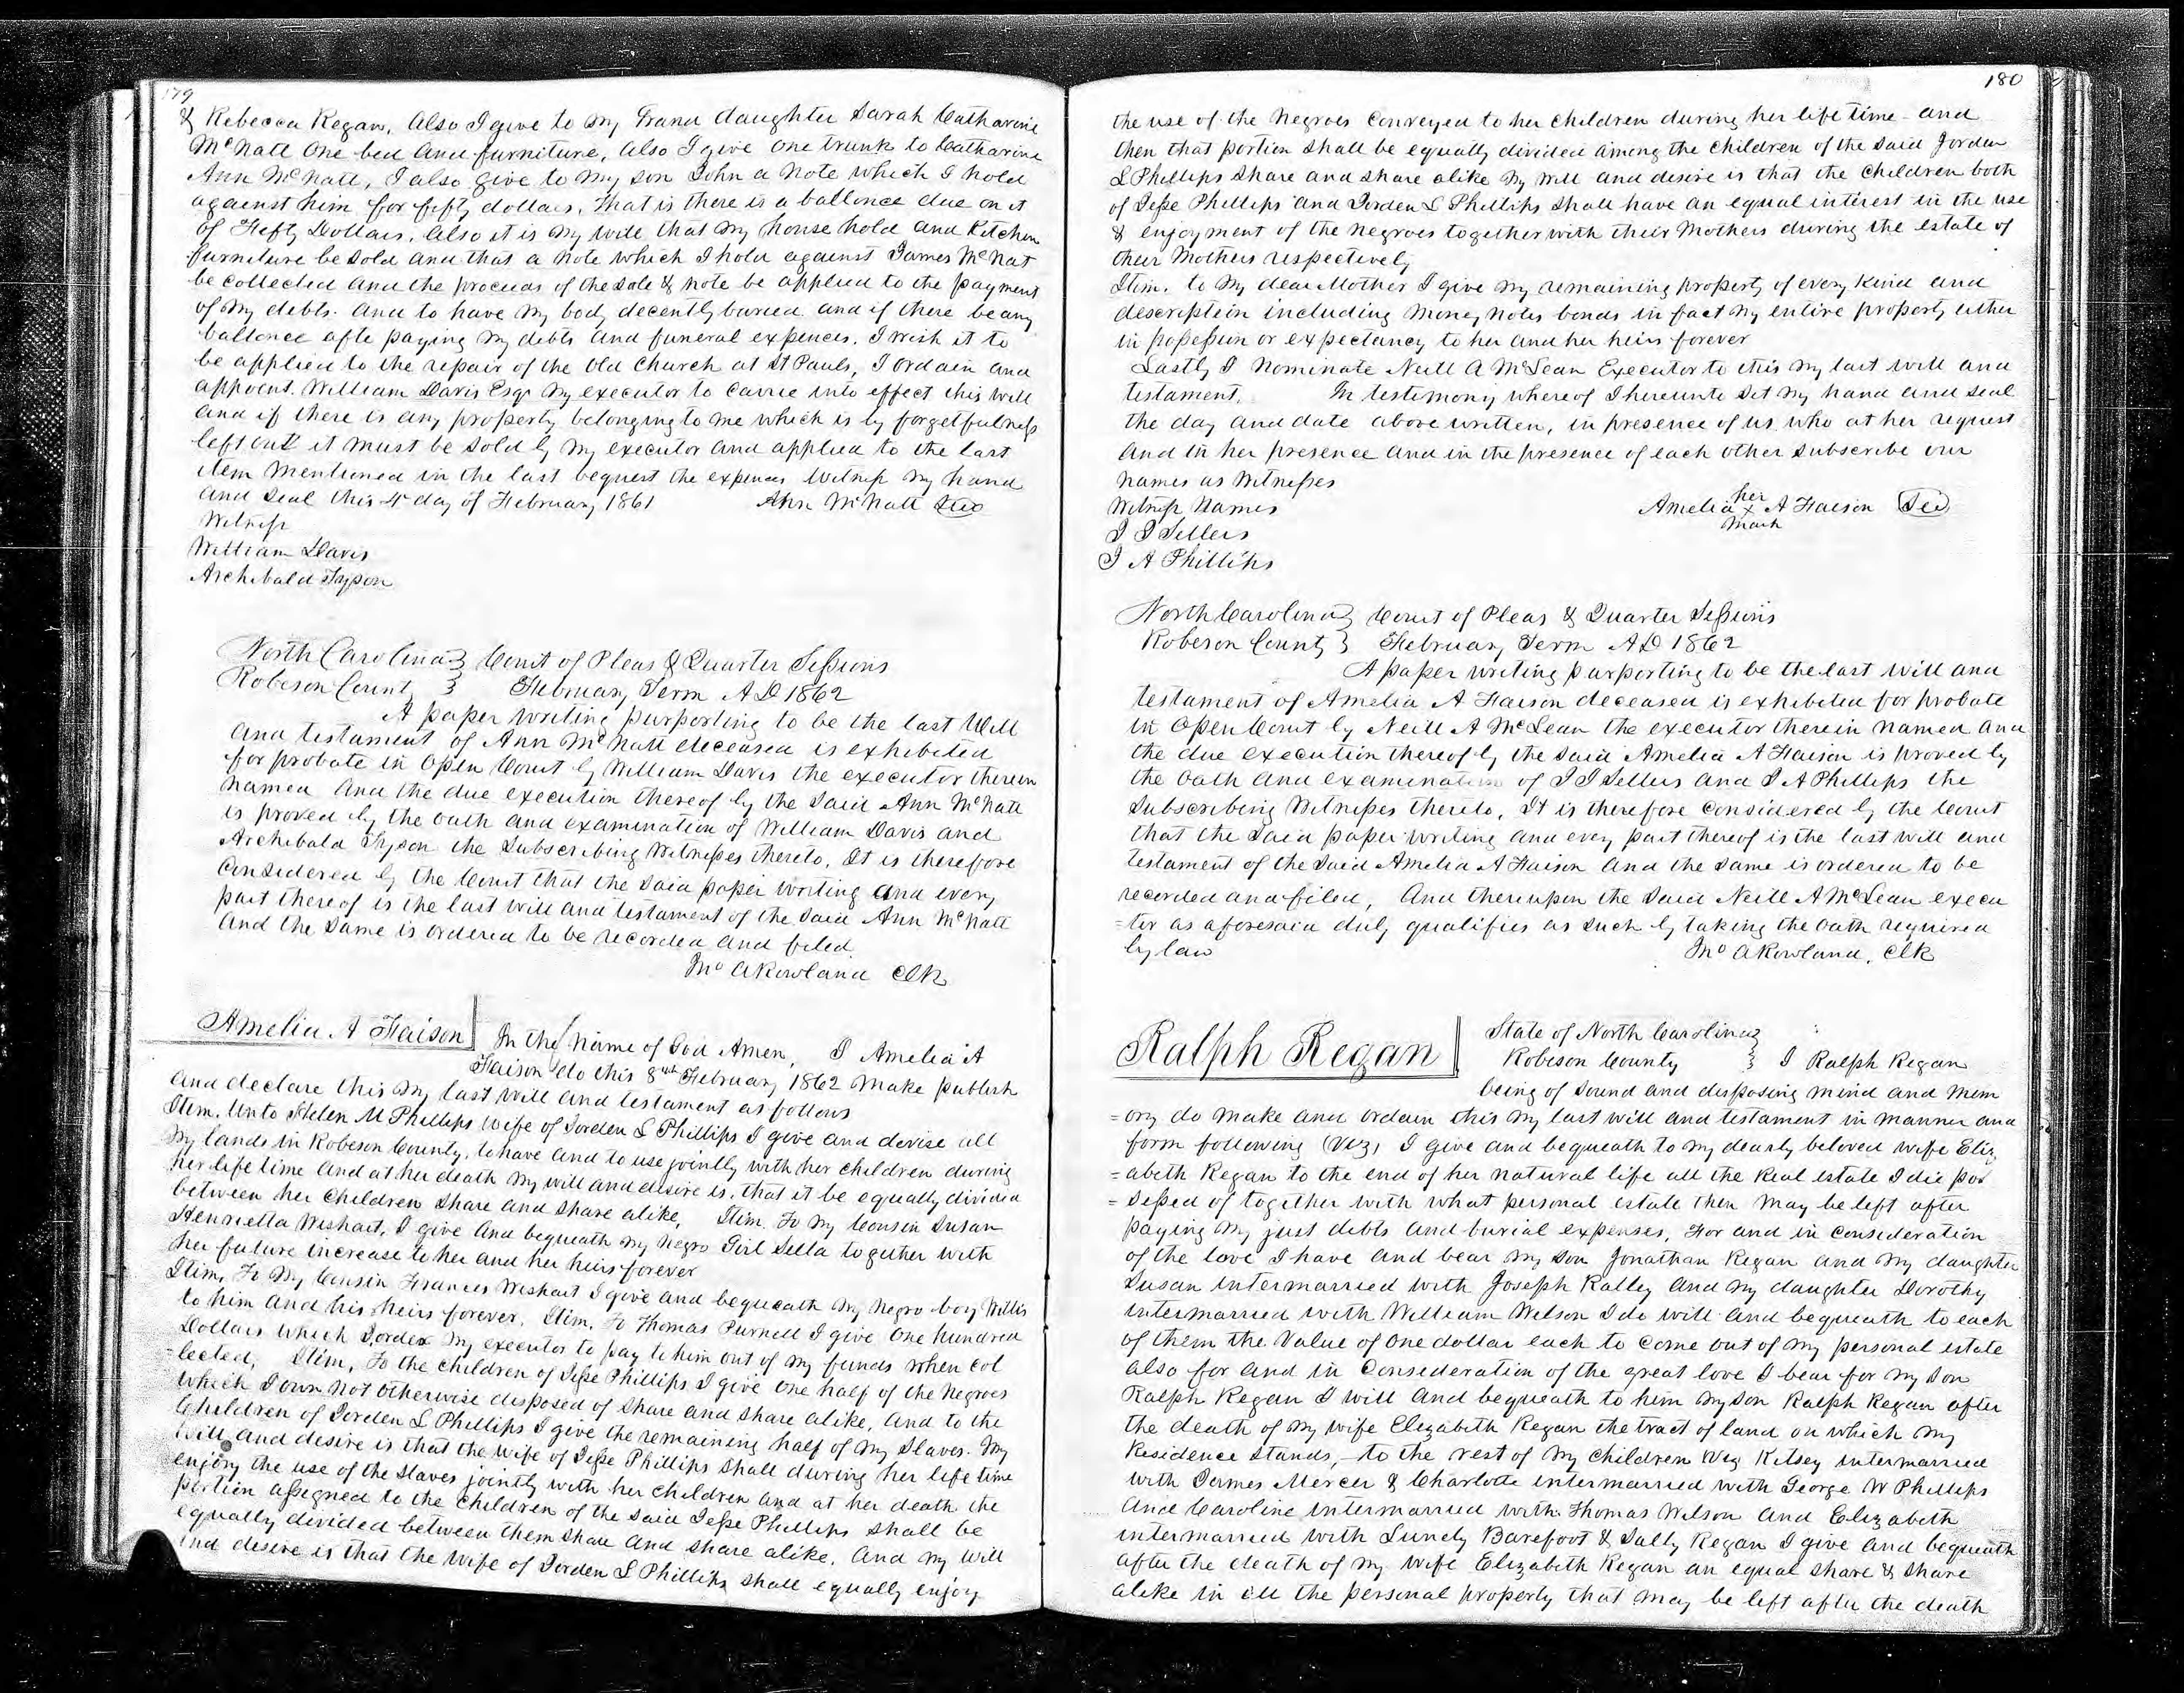 179
& Rebecca Regan, Also I give to my Grand daughter Sarah Catharine
McNatt One bed and furniture, Also I give one trunk to Catharine
Ann McNatt, I also give to my son John a note which I hold
against him for fifty dollars, that is there is a ballance due on it
of Fifty Dollars, Also it is my will that my house hold and Kitchen
furniture be sold and that a note which I hold against James McNat
be collected and the proceeds of the sale & note be applied to the payment
of my debts. and to have my body decently buried. and if there be any
ballance afte paying my debts and funeral expences. I wish it to
be applied to the repair of the Old Church at St Pauls, I Ordain and
appoint. William Davis Esqr my executor to Carrie into effect this will
and if there is any property belonging to me which is by forgetfulness
left out it must be sold by my executor and applied to the last
item mentioned in the last bequest the expences Witness my hand
and seal this 4 day of February 1861 Ann McNatt
Witness
William Davis
Archibald Tyson
North Carolina } Court of Pleas & Quarter Sessions
Robeson County } February Term A D 1862
A paper writing purporting to be the last Will
and testament of Ann McNatt deceased is exhibited
for probate in Open Court by William Davis the executor therein
named and the due execution thereof by the said Ann McNatt
is proved by the oath and examination of William Davis and
Archibald Tyson the Subscribing Witnesses thereto. It is therefore
Considered by the Court that the said paper writing and every
part thereof is the last will and testament of the said Ann McNatt
and the same is ordered to be recorded and filed.
Jno A Rowland Clk
Amelia A Faison
In the name of God Amen, I Amelia A
Faison do this 8th February 1862 make publish
and declare this my last will and testament as follows
Item. Unto Helen M Phillips wife of Jorden L Phillips I give and devise all
my lands in Robeson County. to have and to use jointly with her children during
her life time and at her death my will and desire is. that it be equally divided
between her Children share and share alike, Item. To my Cousin Susan
Henrietta Wishart, I give and bequeath my negro Girl Sella together with
her future increase to her and her heirs forever
Item, To my Cousin Frances Wishart I give and bequeath my negro boy Willis
to him and his heirs forever. Item. To Thomas Purnell I give one hundred
Dollars which I order my executor to pay to him out of my funds when col
=lected, Item, To the children of Jesse Phillips I give one half of the Negroes
which I own not otherwise disposed of share and share alike, and to the
Children of Jorden L Phillips I give the remaining half of my Slaves. My
will and desire is that the wife of Jesse Phillips shall during her life time
enjoy the use of the slaves jointly with her children and at her death the
portion assigned to the children of the said Jesse Phillips shall be
equally divided between them share and share alike. And my will
and desire is that the wife of Jorden L Phillips shall equally enjoy
180
the use of the negroes conveyed to her children during her life time and
then that portion shall be equally divided among the children of the said Jorden
L Phillips share and share alike my will and desire is that the children both
of Jesse Phillips and Jorden L Phillips shall have an equal interest in the use
& enjoyment of the negroes together with their mothers during the estate of
their mothers respectively
Item. to my dear Mother I give my remaining property of every kind and
description including money notes bonds in fact my entire property either
in possession or expectancy to her and her heirs forever
Lastly I nominate Neill A McLean Executor to this my last will and
testament. In testimony whereof I hereunto set my hand and seal
the day and date above written, in presence of us who at her request
and in her presence and in the presence of each other subscribe our
names as Witnesses
Witness Names Amelia her x mark A Faison
J J Sellers
J A Phillips
North Carolina } Court of Pleas & Quarter Sessions
Robeson County } February Term A D 1862
A paper writing purporting to be the last will and
testament of Amelia A Faison deceased is exhibited for probate
in Open Court by Neill A McLean the executor therein named and
the due execution thereof by the said Amelia A Faison is proved by
the oath and examination of J J Sellers and J A Phillips the
subscribing Witnesses thereto, It is therefore considered by the Court
that the said paper writing and every part thereof is the last will and
testament of the said Amelia A Faison and the same is ordered to be
recorded and filed, And thereupon the said Neill A McLean execu
=tor as aforesaid duly qualifies as such by taking the oath required
by law Jno A Rowland, Clk
Ralph Regan
State of North Carolina }
Robeson County } I Ralph Regan
being of sound and disposing mind and mem
=ory do make and ordain this my last will and testament in manner and
form following (Viz) I give and bequeath to my dearly beloved wife Eliz
=abeth Regan to the end of her natural life all the real estate I die pos
=sessed of together with what personal estate then may be left after
paying my just debts and burial expenses, For and in consideration
of the love I have and bear my son Jonathan Regan and my daughter
Susan intermarried with Joseph Ralley and my daughter Dorothy
intermarried with William Wilson I do will and bequeath to each
of them the value of one dollar each to come out of my personal estate
also for and in Consideration of the great love I bear for my son
Ralph Regan I will and bequeath to him my son Ralph Regan after
the death of my wife Elizabeth Regan the tract of land on which my
Residence stands, to the rest of my children Viz Kitsey intermarried
with James Mercer & Charlotte intermarried with George W Phillips
and Caroline intermarried with Thomas Wilson and Elizabeth
intermarried with Lundy Barefoot & Sally Regan I give and bequeath
after the death of my wife Elizabeth Regan an equal share & share
alike in all the personal property that may be left after the death